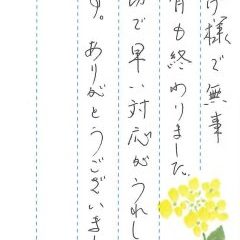 け様で無事
月も終わりました。
切で早い対応がうれし
す。ありがとうございまし